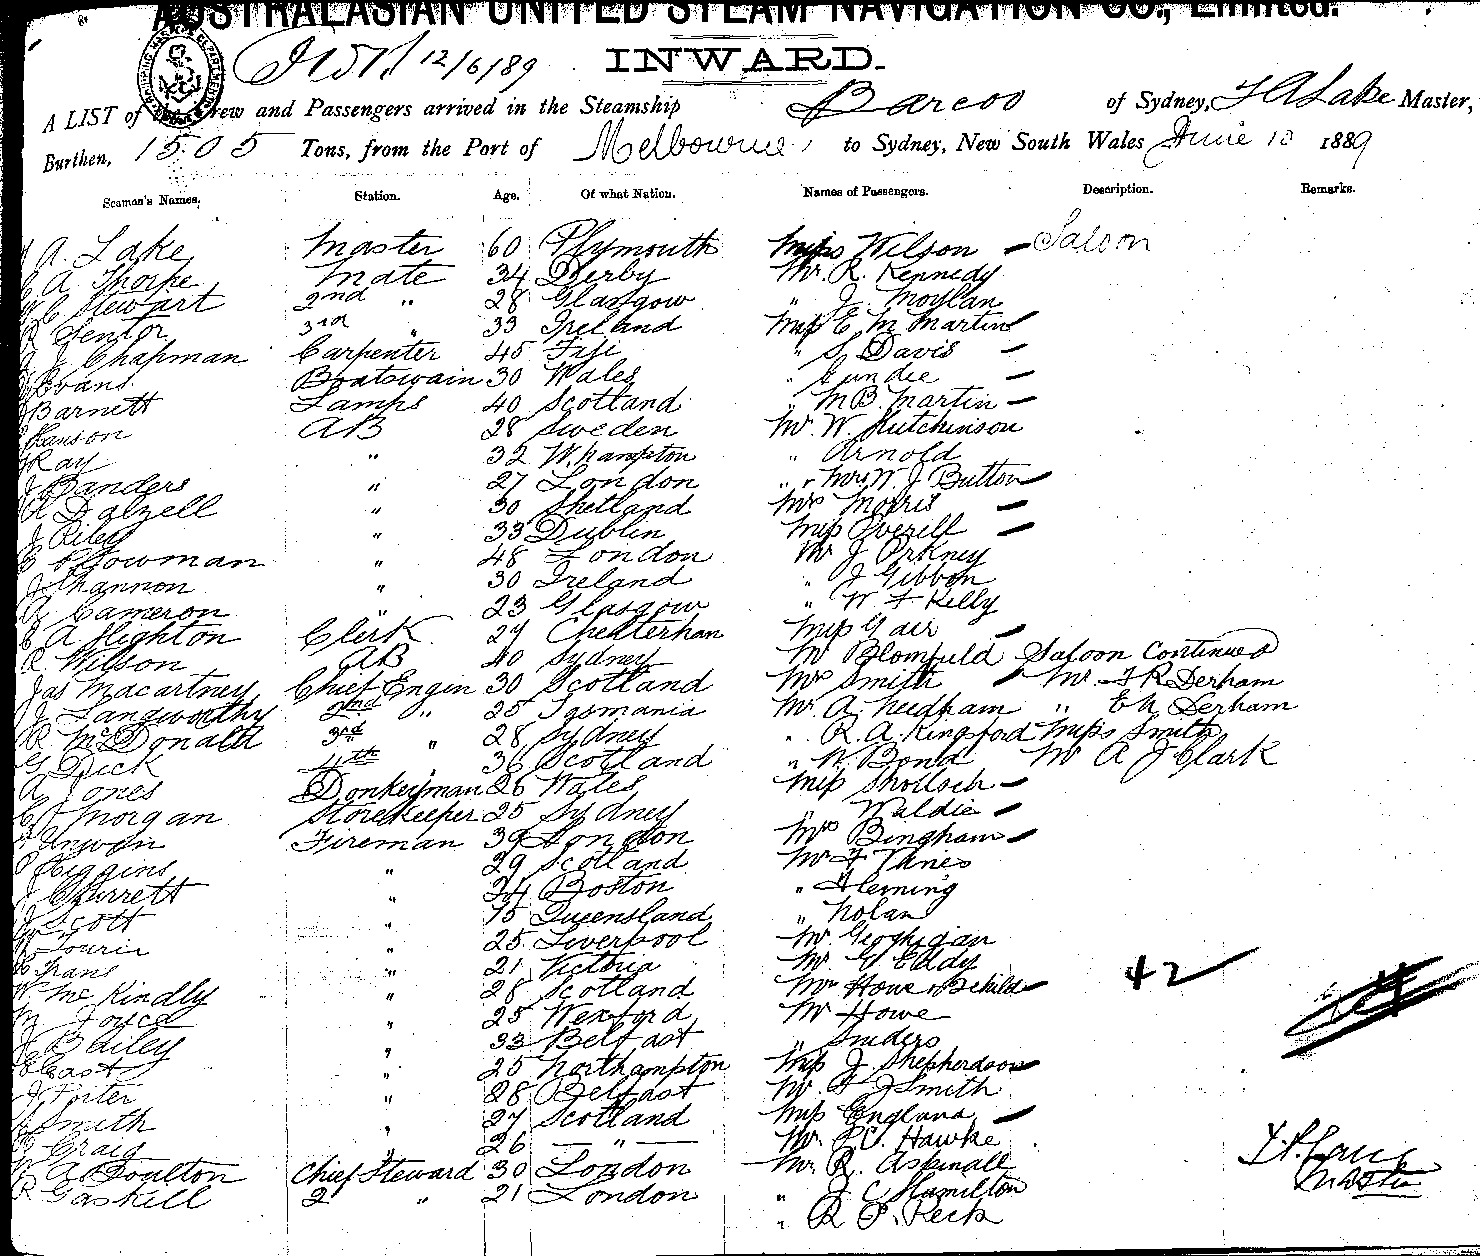 AUSTRALASIAN UNITED STEAM NAVIGATION CO., Limited.
12/6/89
INWARD.
A LIST of Crew and Passengers arrived in the Steamship Barcoo of Sydney, Lake Master,
Burthen, 1505 Tons, from the Port of Melbourne to Sydney, New South Wales June 1889
Seaman's Names. Station. Age. Of what Nation. Names of Passengers. Description. Remarks.
A. Lake Master 60 Plymouth Miss Wilson - Saloon
A Thorpe Mate 34 Derby Mr. R. Kennedy
C Stewart 2nd " 28 Glasgow " J. Moylan
Senior 3rd " 33 Ireland Miss E M Martin
J Chapman Carpenter 45 Fiji " S Davis -
Evans Boatswain 30 Wales " -
Barnett Lamps 40 Scotland " M B. Martin -
Hanson AB 28 Sweden Mr. W Hutchinson
Ray " 32 W. hampton " Arnold
J Sanders " 27 London " + Mrs W. J Button
Dalzell " 30 Shetland Mrs Morris -
J Riley " 33 Dublin Miss Overell -
Bowman " 48 London Mr J Orkney
J Shannon " 30 Ireland " J Gibbon
A Cameron " 23 Glasgow " W F Kelly
A Highton Clerk 27 Cheltenham Miss Gair -
R Wilson AB 40 Sydney Mr Blomfield Saloon Continued
Jas Macartney Chief Engin 30 Scotland Mrs Smith - Mr. F R Derham
J Langworthy 2nd " 25 Tasmania Mr. A. Needham " Derham
R McDonald 3rd " 28 Sydney " R. A. Kingsford Miss Smith
G Dick 4th 36 Scotland " W. Bond Mr A J Clark
A Jones Donkeyman 26 Wales Miss -
Morgan Storekeeper 25 Sydney " Waldie -
Unwin Fireman 39 London Mrs Bingham -
Higgins " 29 Scotland Mr
J Sherrett " 34 Boston " Fleming
J Scott " Queensland " Nolan
" 25 Liverpool Mr. Geoghegan
" 21 Victoria Mr. Eddy
McKindly " 28 Scotland Mrs Howe & Child - 42
M Joyce " 25 Wexford Mr Howe
J Bailey " 33 Belfast "
East " 25 Northampton Miss J Shepherdson
J Porter " 28 Belfast Mr. J Smith
Smith " 27 Scotland Miss England -
Craig " 26 — " — Mr. Hawke
A Boulton Chief Steward 30 London Mr. R. Aspinall
R Gaskell 2 " 21 London " J C Hamilton
" R P. Peck
Master